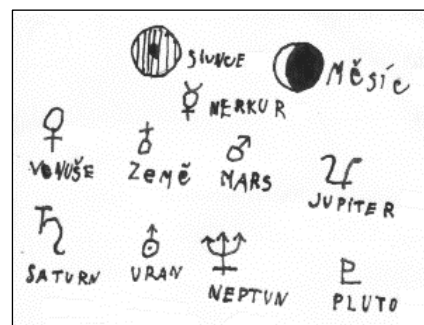 SLUNCE
MĚSÍC
NERKUR
VENUŠE ZEMĚ MARS
JUPITER
SATURN URAN
NEPTUN PLUTO